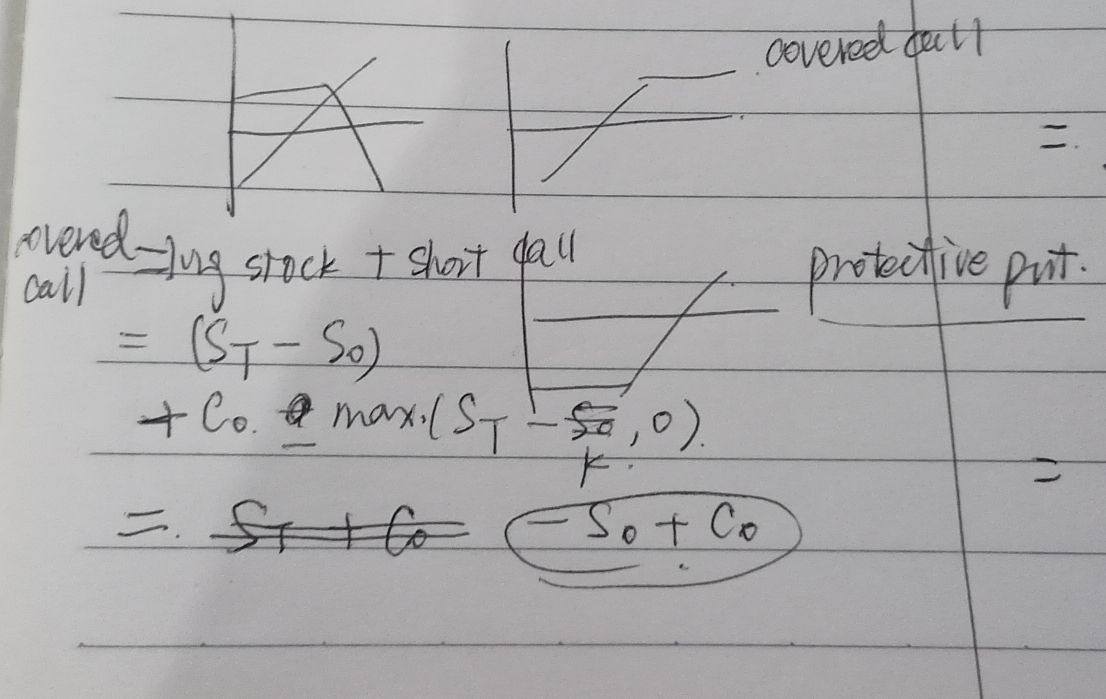 covered call
=
covered = long stock + short call
call
protective put.
= (S_T - S_0)
+ C_0. - max.(S_T - K, 0).
=
=. -S_0 + C_0